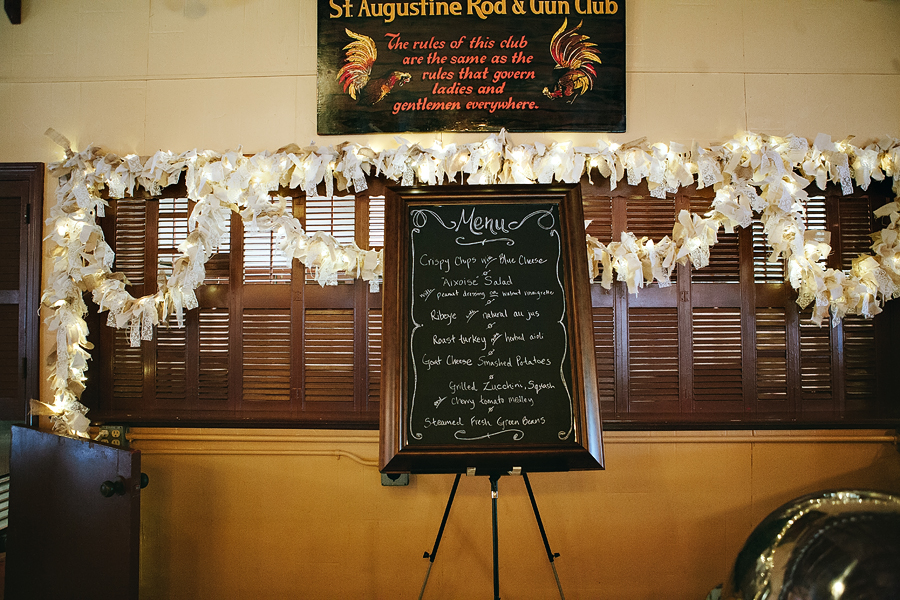 St Augustine Rod & Gun Club
The rules of this club
are the same as the
rules that govern
ladies and
gentlemen everywhere.
Menu
Crispy Chips with Blue Cheese
or
Aixoise Salad
with peanut dressing or walnut vinaigrette
or
Ribeye with natural au jus
or
Roast turkey with herbed aioli
or
Goat Cheese Smashed Potatoes
or
Grilled Zucchini, Squash
and Cherry tomato medley
or
Steamed Fresh Green Beans